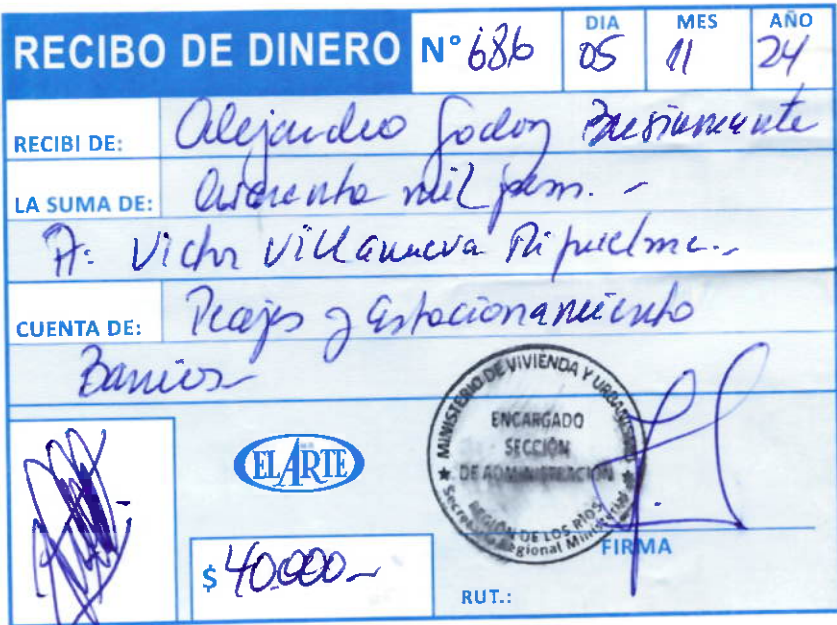 RECIBO DE DINERO N° 686 DIA 05 MES 11 AÑO 24
RECIBI DE: Alejandro Godoy Bustamante
LA SUMA DE: Cuarenta mil pesos.-
A: Victor Villanueva Riquelme.-
CUENTA DE: Peajes y Estacionamiento
Barrios
MINISTERIO DE VIVIENDA Y URBANISMO
ENCARGADO
SECCIÓN
DE ADMINISTRACIÓN
REGIÓN DE LOS RÍOS
Secretaría Regional Ministerial
EL ARTE
$ 40.000-
FIRMA
RUT.: